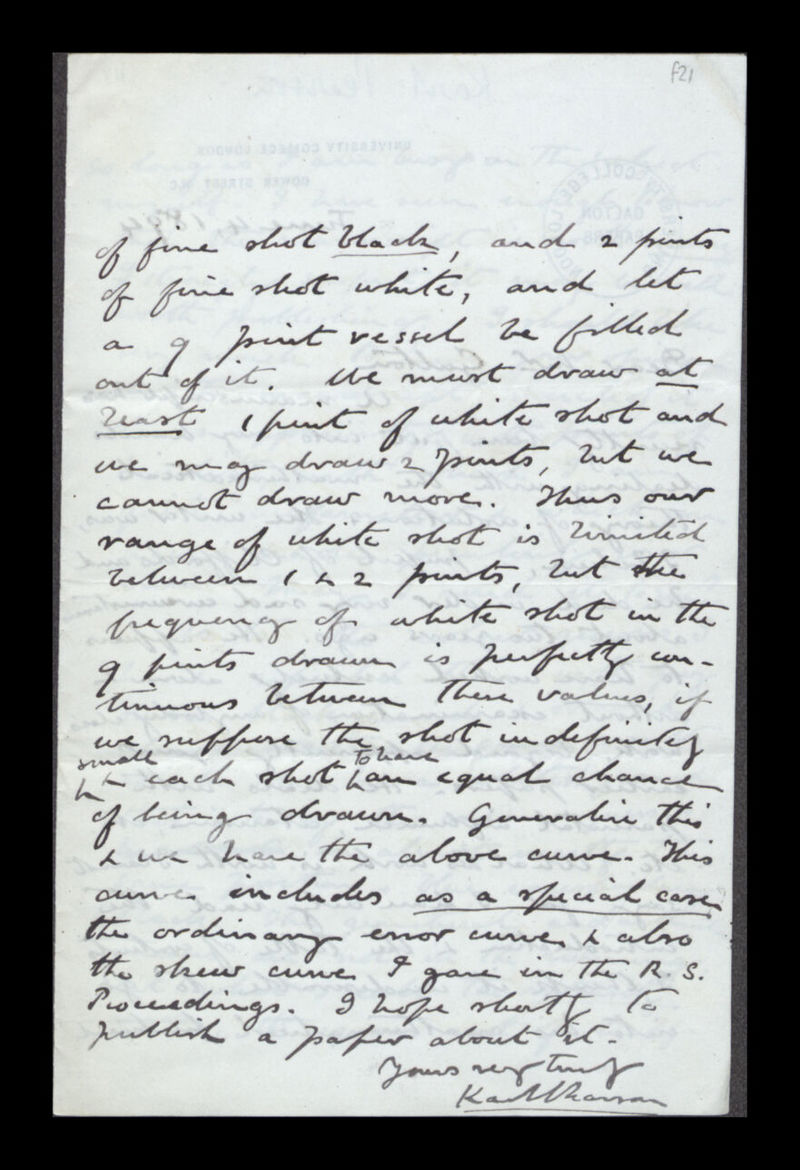 f21
of fine shot black, and 2 pints
of fine shot white, and let
a 9 pint vessel be filled
out of it. We must draw at
least 1 pint of white shot and
we may draw 2 pints, but we
cannot draw more. Thus our
range of white shot is limited
between 1 & 2 pints, but the
frequency of white shot in the
9 pints drawn is perfectly con-
tinuous between these values, if
we suppose the shot indefinitely
small & each shot to have an equal chance
of being drawn. Generalise this
& we have the above curve. This
curve includes as a special case
the ordinary error curve & also
the skew curve I gave in the R. S.
Proceedings. I hope shortly to
publish a paper about it.
Yours very truly
Karl Pearson